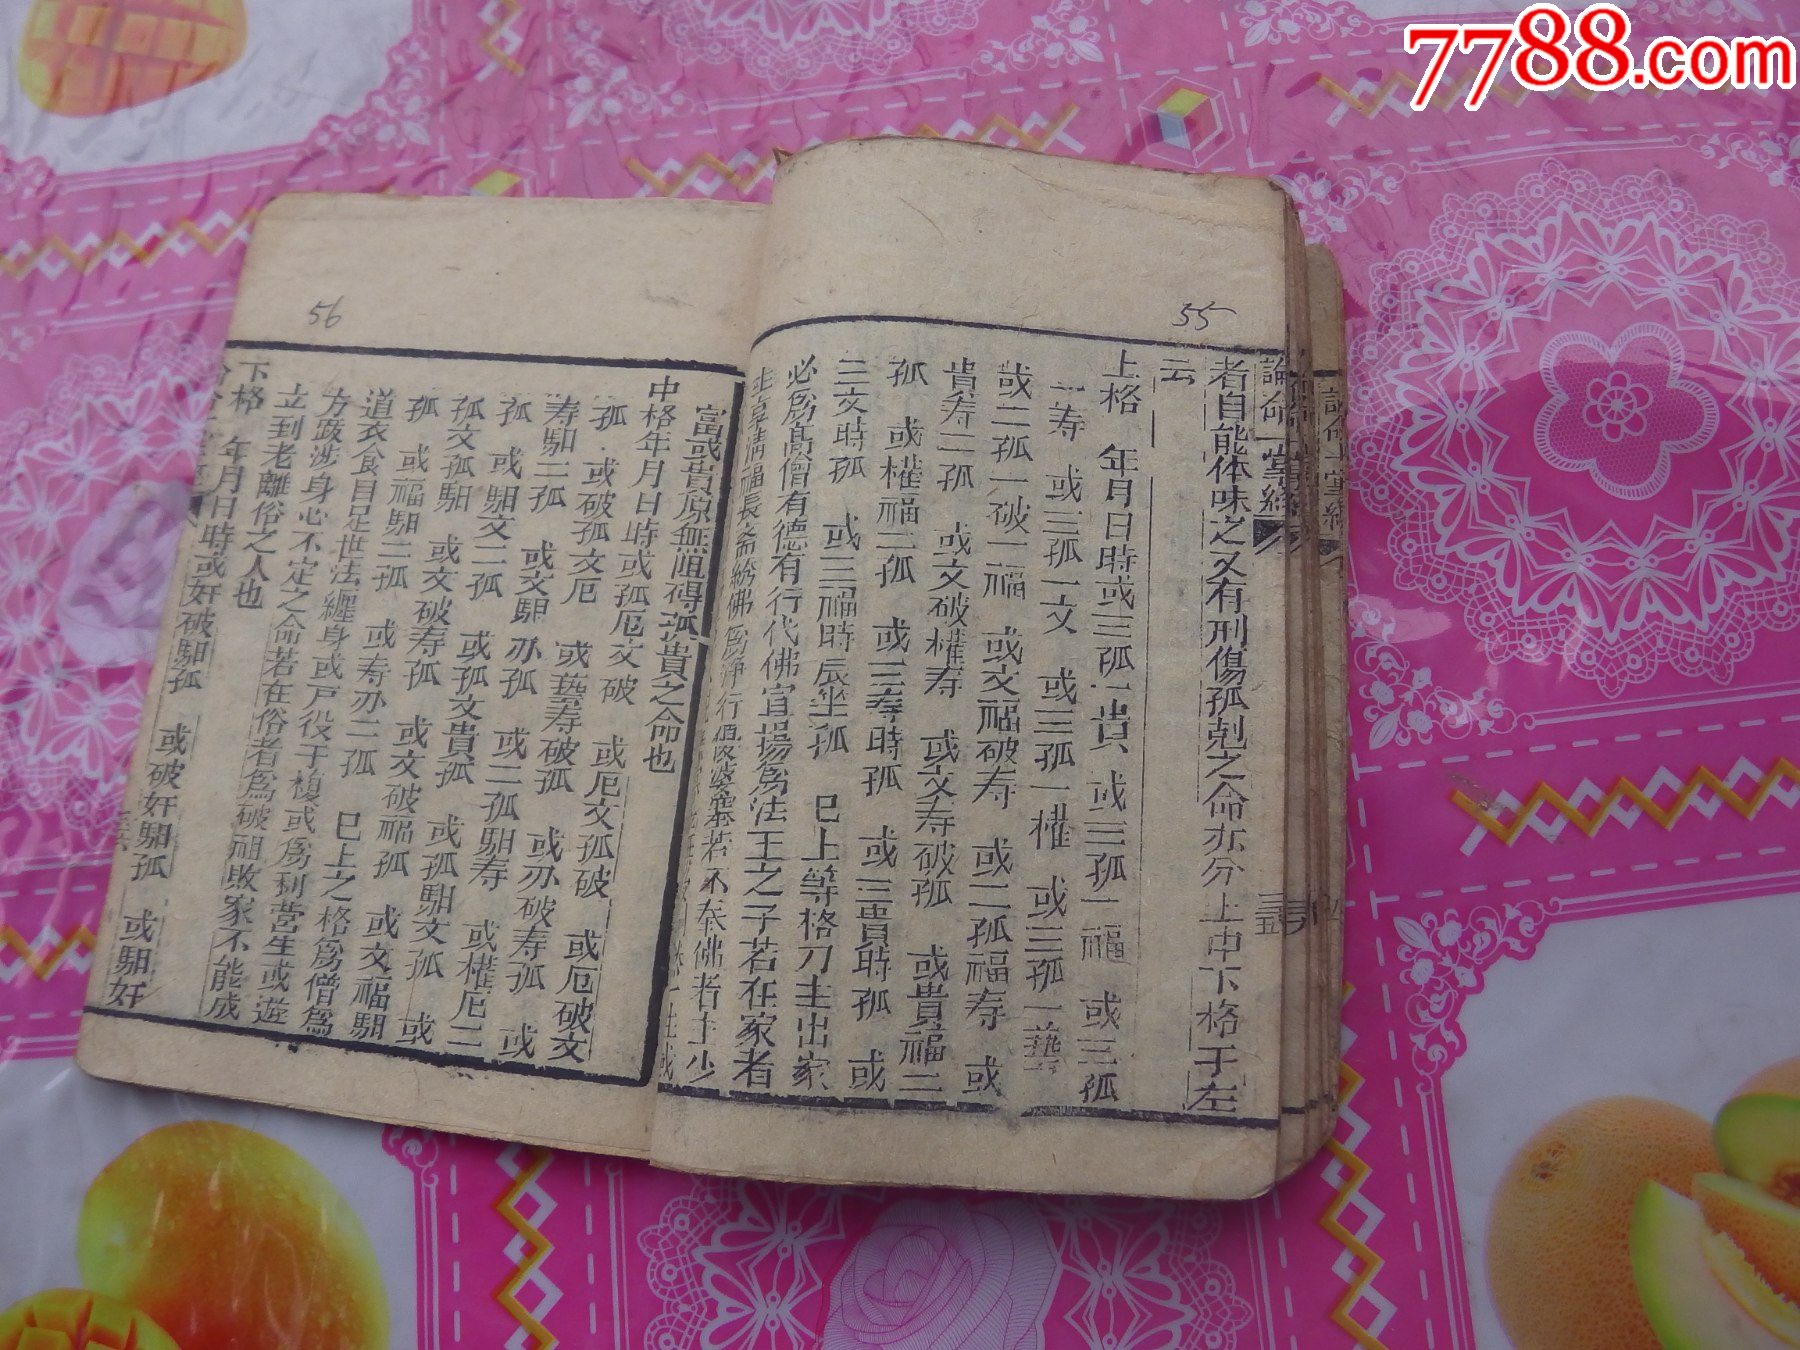 7788.com
55
論命一掌經
三五
者自能体味之又有刑傷孤剋之命亦分上中下格于左
云
上格 年月日時或三孤一貴 或三孤二福 或三孤
一寿 或三孤一文 或三孤一權 或三孤一藝
或二孤一破二福 或文福破寿 或二孤福寿 或
貴寿二孤 或文破權寿 或文寿破孤 或貴福二
孤 或權福二孤 或三寿時孤 或三貴時孤 或
三文時孤 或三福時辰坐孤 巳上等格刀主出家
必為高僧有德有行代佛宜揚為法王之子若在家者
主享清福長齋綉佛為淨行優婆塞若不奉佛者主少
56
富或貴原無阻碍孤貴之命也
中格年月日時或孤厄文破 或厄文孤破 或厄破文
孤 或破孤文厄 或藝寿破孤 或刃破寿孤 或
寿馹二孤 或文馹刃孤 或二孤馹寿 或權厄二
孤 或馹文二孤 或孤文貴孤 或孤馹文孤 或
孤文孤馹 或文破寿孤 或文破福孤 或文福馹
孤 或福馹二孤 或寿刃二孤 巳上之格為僧為
道衣食自足世法纏身或戸役于櫌或為利營生或遊
方跋涉身心不定之命若在俗者為破祖敗家不能成
立到老離俗之人也
下格 年月日時或奸破馹孤 或破奸馹孤 或馹奸